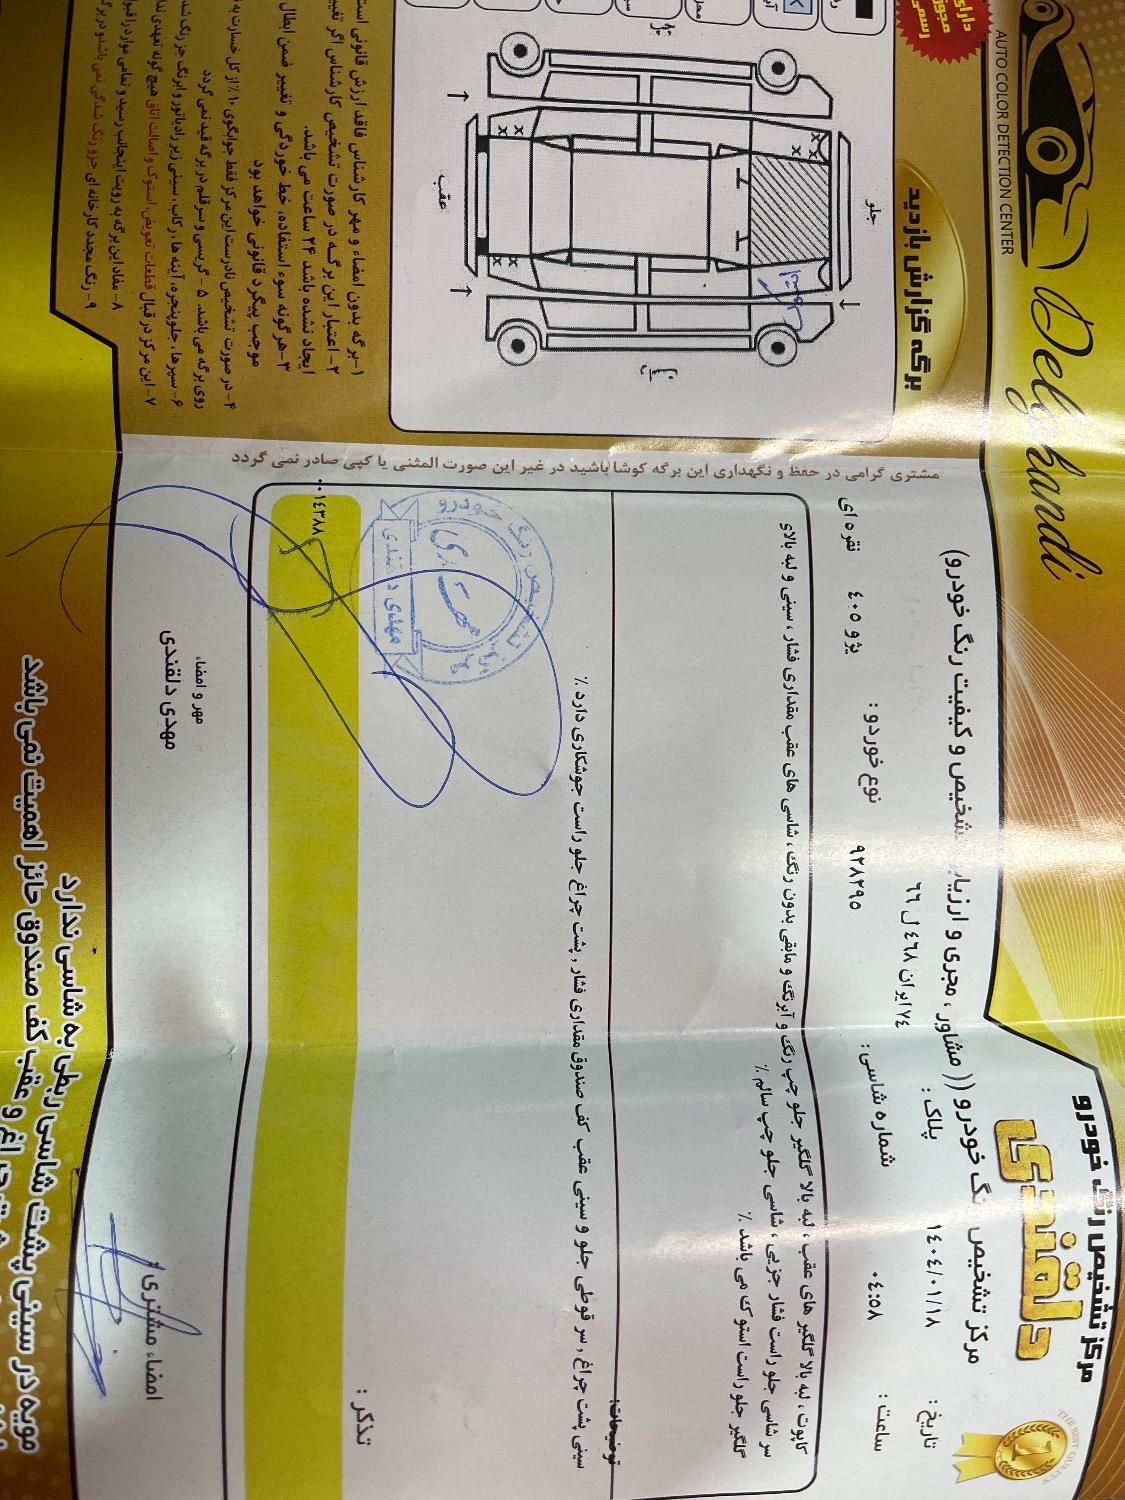 مرکز تشخیص رنگ خودرو
دلقندی
THE BEST QULITY
1
Delghandi
AUTO COLOR DETECTION CENTER
دارای
مجوز
رسمی
مرکز تشخیص رنگ خودرو (( مشاور ، مجری و ارزیابی تشخیص و کیفیت رنگ خودرو)
برگه گزارش بازدید
تاریخ : ۱٤۰٤/۰۱/۱۸
پلاک : ۷٤ ایران ٤٦۸ ل ٦٦
ساعت : ۰٤:۵۸
شماره شاسی : ۹۲۸۲۹۵
نوع خوردو : پژو ٤۰۵ نقره ای
کاپوت ، لبه بالا گلگیر های عقب ، لبه بالا گلگیر جلو چپ رنگ و آبرنگ و مابقی بدون رنگ ، شاسی های عقب مقداری فشار ، سینی و لبه بالای
سر شاسی جلو راست فشار جزیی ، شاسی جلو چپ سالم ٪
گلگیر جلو راست استوک می باشد ٪
توضیحات:
سینی پشت چراغ ، سر قوطی جلو و سینی عقب کف صندوق مقداری فشار ، پشت چراغ جلو راست جوشکاری دارد ٪
تذکر :
۰۰۱٤۳۸۸
مهدی دلقندی
مهر و امضاء
مهدی دلقندی
امضاء مشتری
مشتری گرامی در حفظ و نگهداری این برگه کوشا باشید در غیر این صورت المثنی یا کپی صادر نمی گردد
جلو
عقب
چپ
راست
۱-برگه بدون امضاء و مهر کارشناس فاقد ارزش قانونی است
۲- اعتبار این برگه در صورت تشخیص کارشناس اگر تغییر
ایجاد نشده باشد ۲۴ ساعت می باشد.
۳-هر گونه سوء استفاده، خط خوردگی و تغییر ضمن ابطال
موجب پیگرد قانونی خواهد بود
۴- در صورت تشخیص نادرست این مرکز فقط جوابگوی ۱۰٪ از کل خسارت به
روی برگه می باشد. ۵ - گریسی و سرقلم در برگه قید نمی گردد
۶- سپرها، جلوپنجره، آینه ها، رکاب، سینی زیر رادیاتور و ابرنگ جز رنگ
۷- این مرکز در قبال قطعات تعویض، استوک و اصالت اتاق هیچ گونه تعهدی
۸- مفاد این برگه به رویت اینجانب رسید و تمامی موارد را
۹- رنگ مجدد کارخانه ای جزو رنگ شدگی نمی باشد و در
مویه در سینی پشت شاسی ربطی به شاسی ندارد
و عقب کف صندوق حائز اهمیت نمی باشد